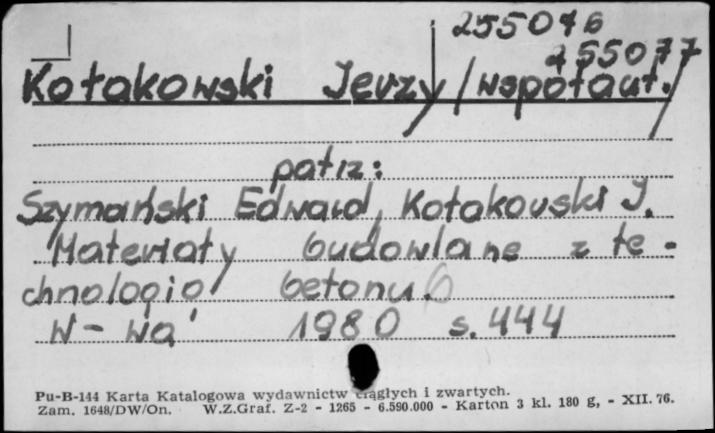 255076
255077
Kołakowski Jerzy /współaut./
patrz:
Szymański Edward, Kołakowski J.
Materiały budowlane z te-
chnologią betonu.
W-wa 1980 s. 444
Pu-B-144 Karta Katalogowa wydawnictw ciągłych i zwartych.
Zam. 1648/DW/On. W.Z.Graf. Z-2 - 1265 - 6.590.000 - Karton 3 kl. 180 g, - XII. 76.